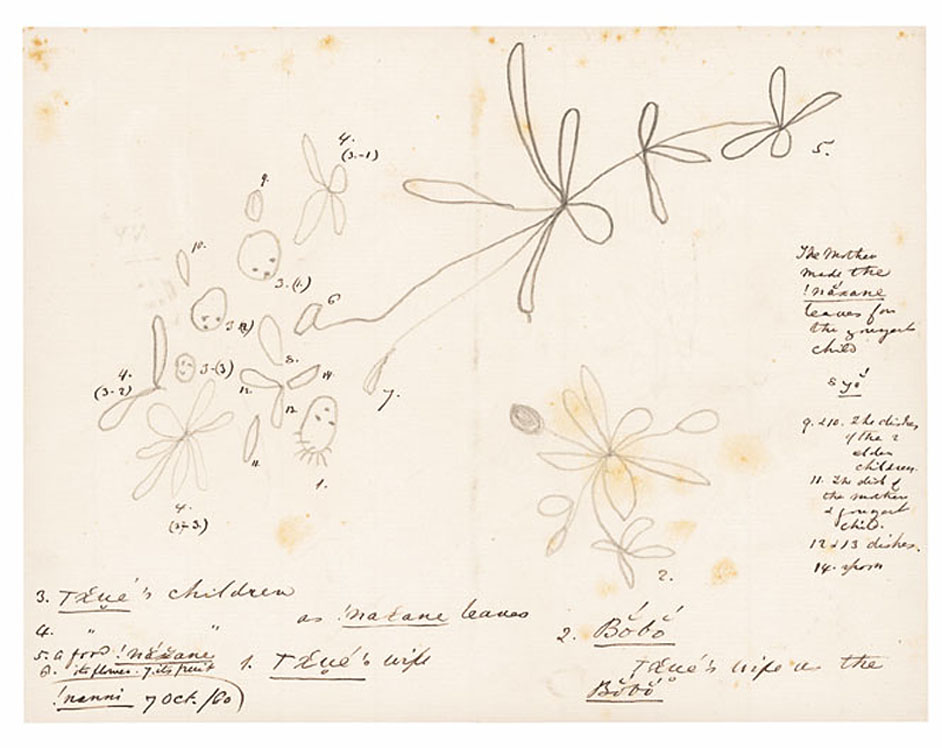 4.
(3.-1)
5.
9.
10.
3-(1.)
6
3 (2)
8.
3-(3)
4.
(3-2)
12.
14.
7.
13.
11.
1.
4.
(3-3.)
2.
The Mother
made the
!năxane
leaves for
the youngest
child
8 yŏ́
9. &10. The dishes
of the 2
elder
children.
11. The dish of
the mother
& youngest
child.
12 & 13 dishes.
14. spoon
3. children
as leaves
4. " "
5. a food
6. its flower. 7. its fruit
1. wife
!nanni 7 Oct. /80)
2. Bŏ́bŏ́
wife as the
Bŏ́bŏ́